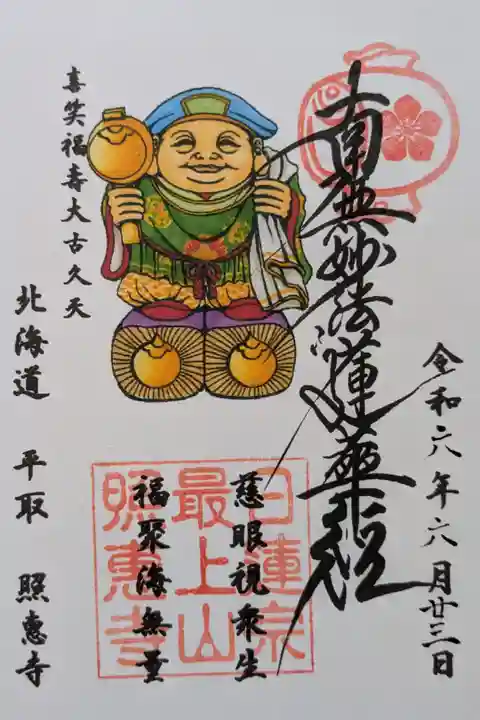 令和六年六月廿三日
南無妙法蓮華経
慈眼視衆生
福聚海無量
日蓮宗
最上山
照恵寺
喜笑福寿大古久天
北海道 平取 照恵寺